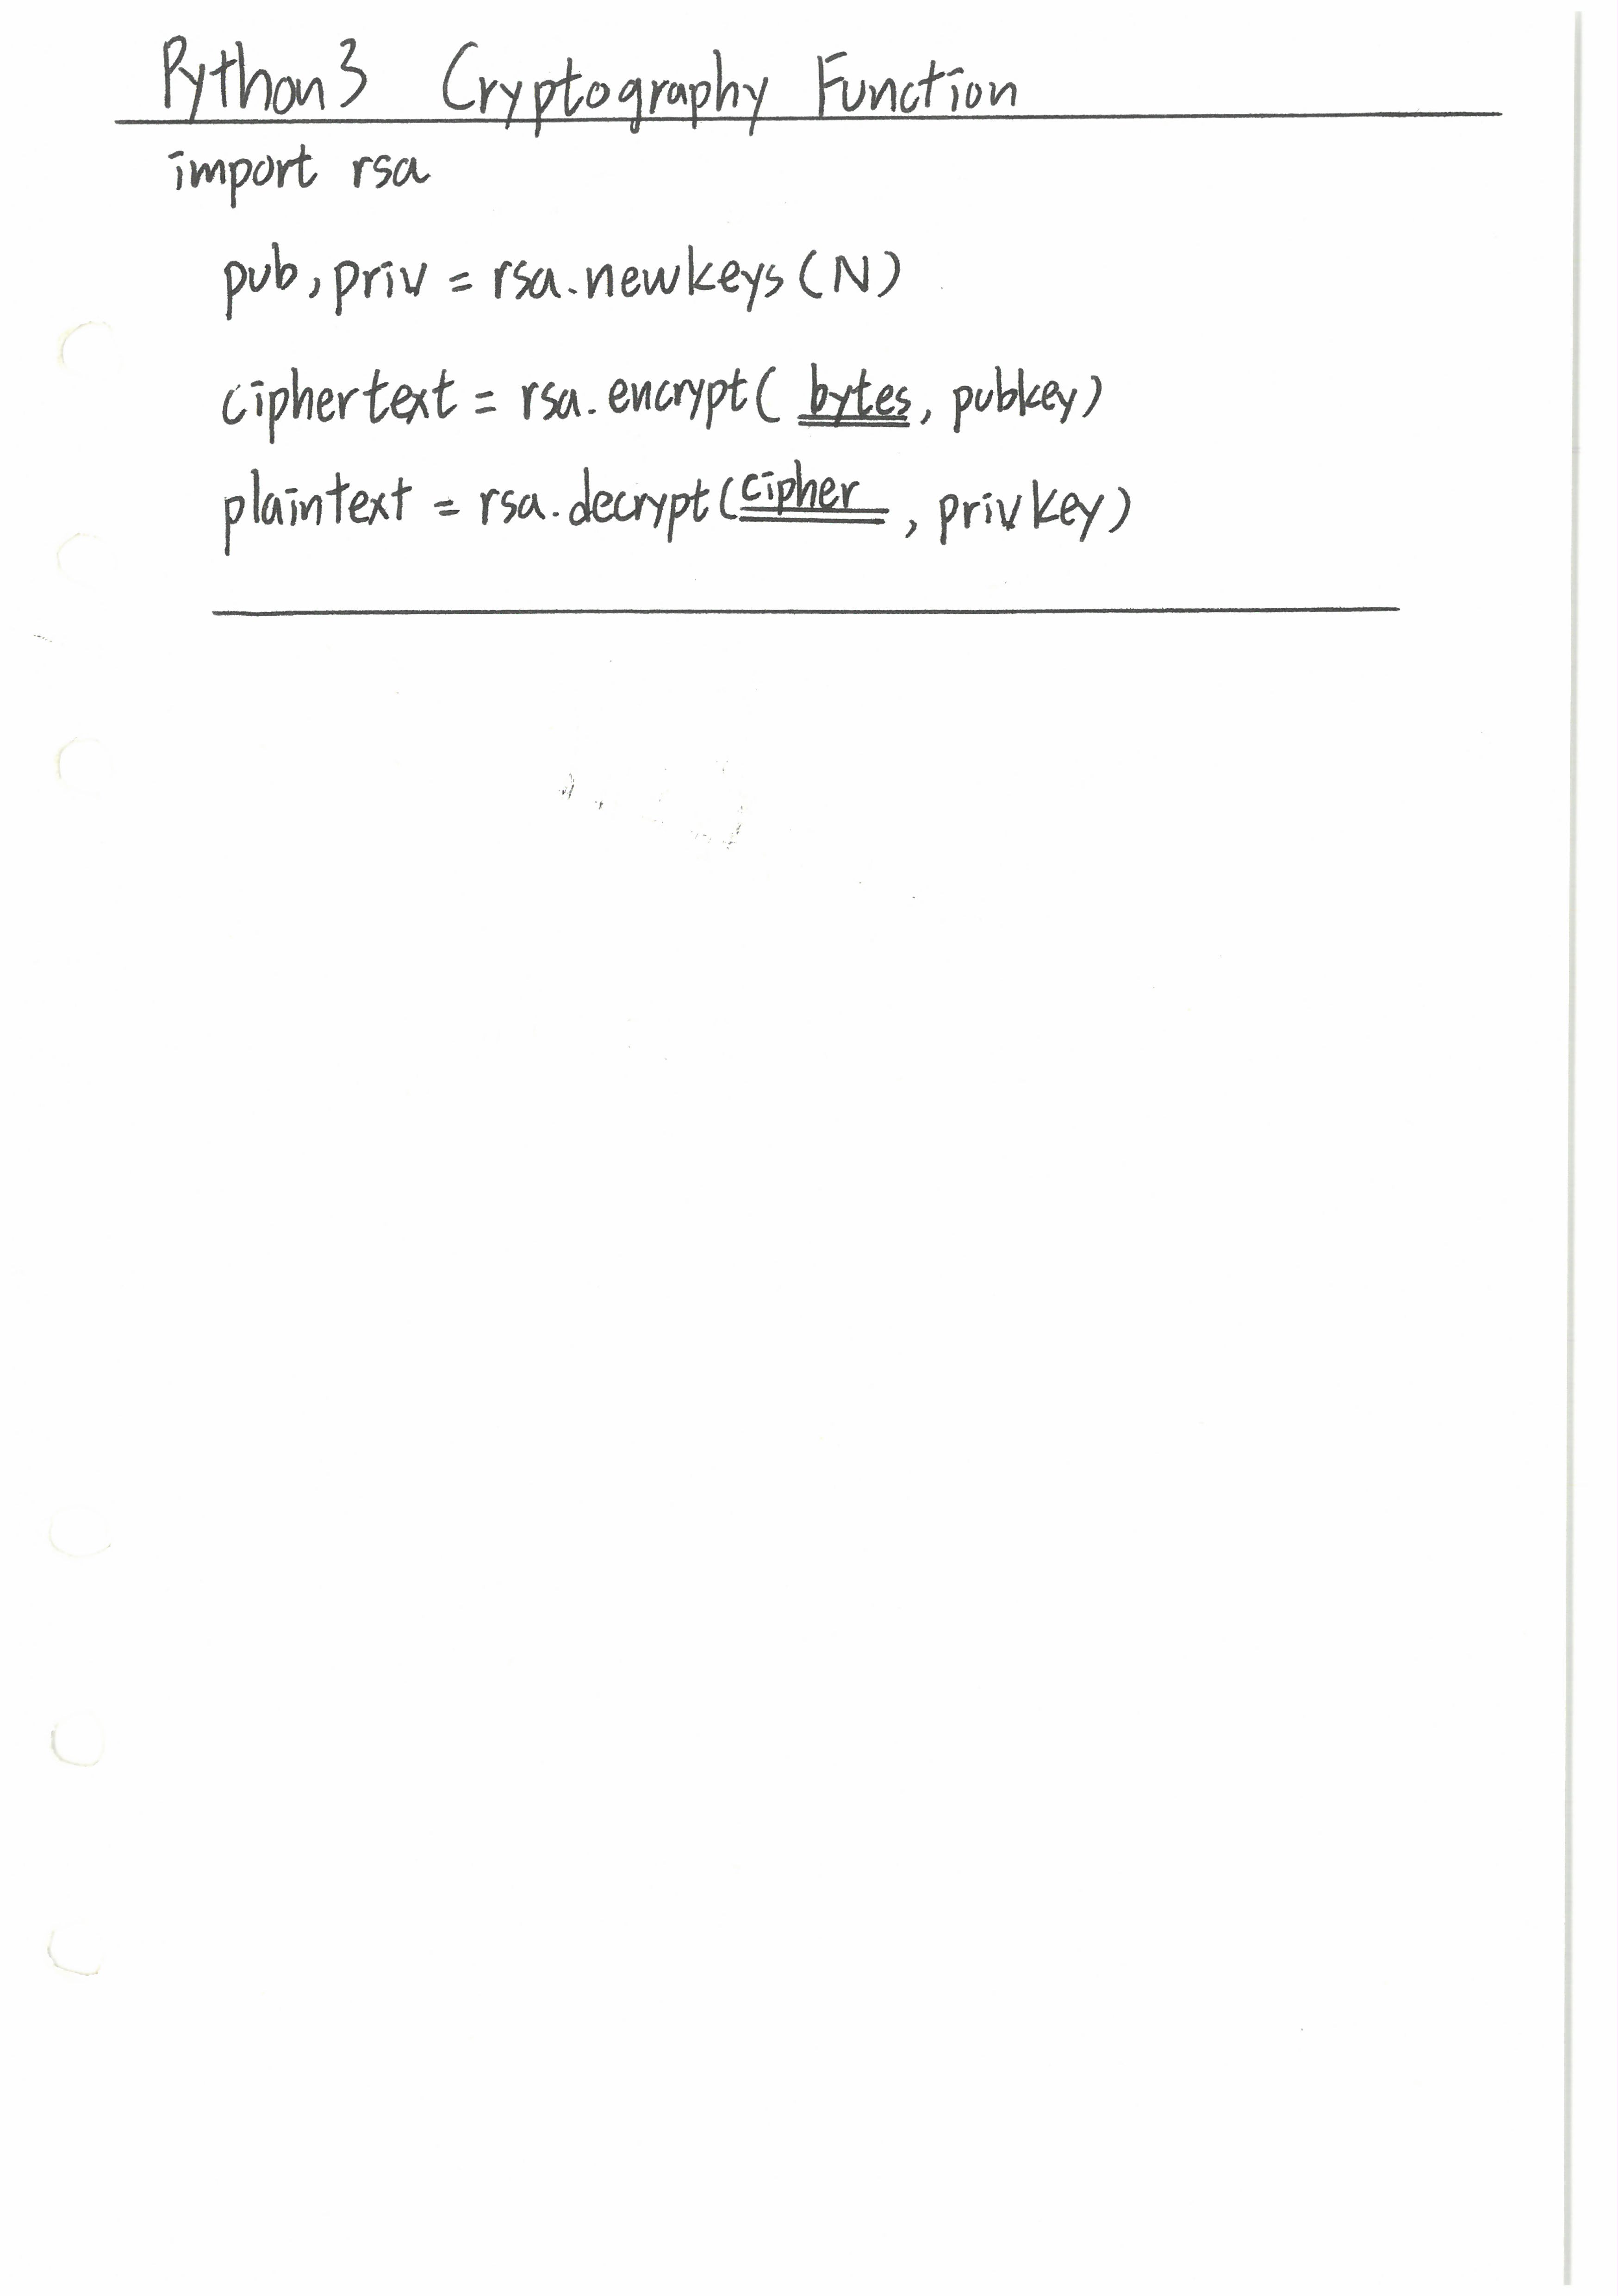 Python3 Cryptography Function
import rsa
pub, priv = rsa.newkeys(N)
ciphertext = rsa.encrypt( bytes, pubkey)
plaintext = rsa.decrypt(cipher , privkey)